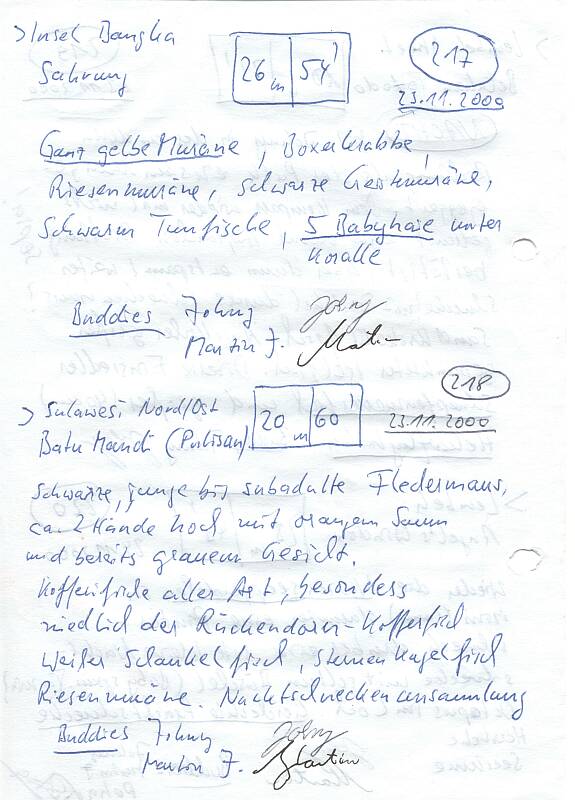 > Insel Bangka
Sahrung
26 m 54'
217
23.11.2000
Ganz gelbe Muräne, Boxerkrabbe,
Riesenmuräne, schwarze Geistmuräne,
Schwarm Tunfische, 5 Babyhaie unter
Koralle
Buddies Johny
Martin J.
> Sulawesi Nord/Ost
Batu Mandi (Pulisan)
20 m 60'
218
23.11.2000
Schwarze, junge bis subadulte Fledermaus,
ca. 2 Hände hoch mit orangem Saum
und bereits grauem Gesicht.
Kofferfische aller Art, besonders
niedlich der Rückendorn-Kofferfisch
weißer Schaukelfisch, Sternenkugelfisch
Riesenmuräne. Nacktschneckenansammlung
Buddies Johny
Martin J.